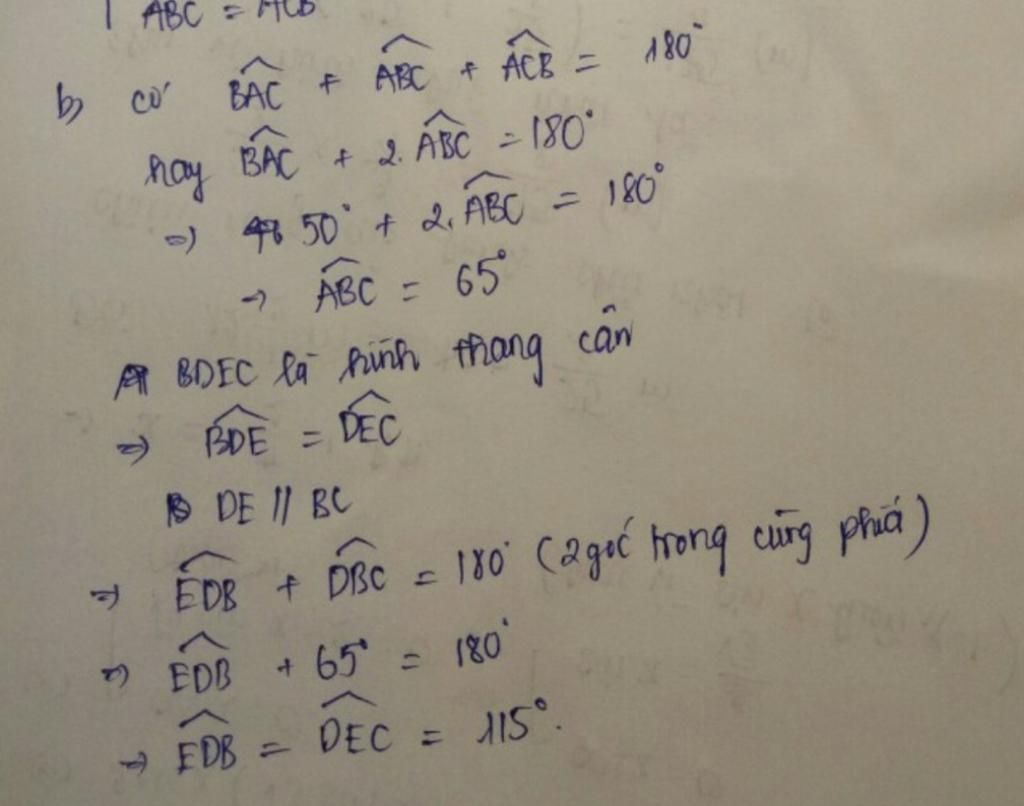 ABC = ACB
b) có BAC^ + ABC^ + ACB^ = 180°
hay BAC^ + 2. ABC^ = 180°
=> 50° + 2. ABC^ = 180°
→ ABC^ = 65°
BDEC là hình thang cân
=> BDE^ = DEC^
DE // BC
=> EDB^ + DBC^ = 180° (2 góc trong cùng phía)
=> EDB^ + 65° = 180°
→ EDB^ = DEC^ = 115°.